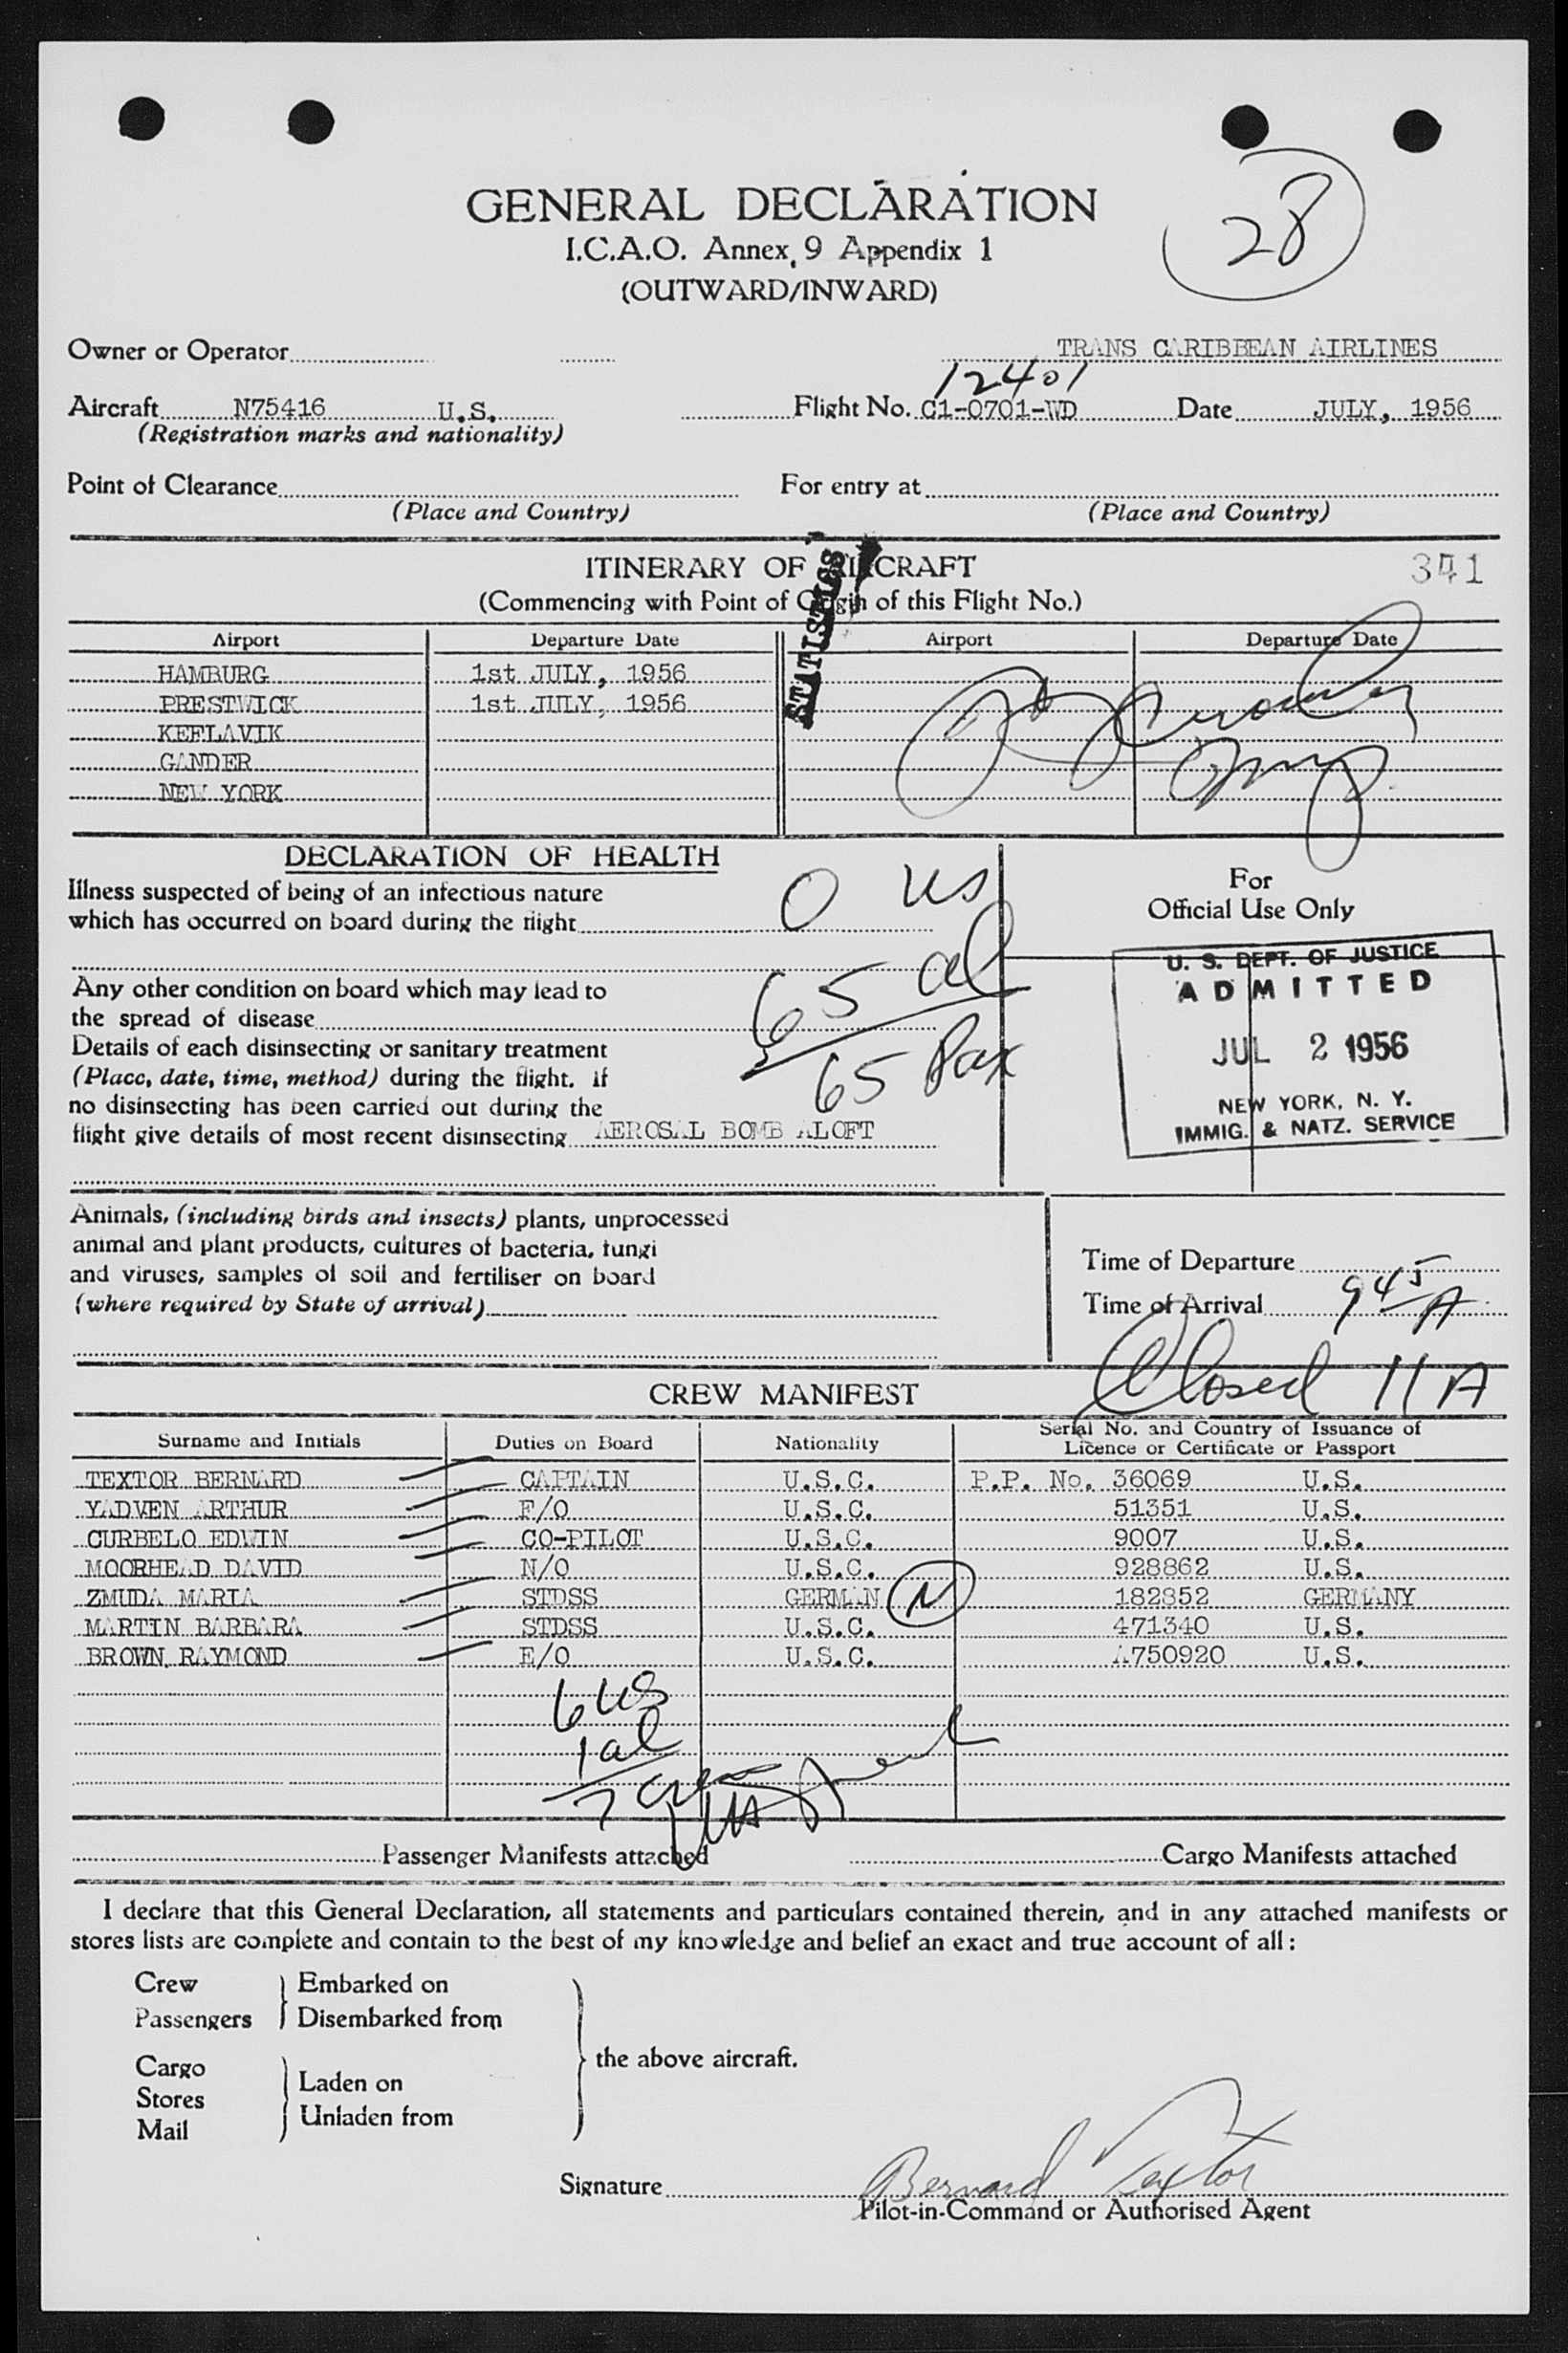 28
GENERAL DECLARATION
I.C.A.O. Annex 9 Appendix 1
(OUTWARD/INWARD)
Owner or Operator TRANS CARIBBEAN AIRLINES
12401
Aircraft N75416 U.S. Flight No. C1-0701-WD Date JULY, 1956
(Registration marks and nationality)
Point of Clearance For entry at
(Place and Country) (Place and Country)
STATISTICS
ITINERARY OF AIRCRAFT 341
(Commencing with Point of Origin of this Flight No.)
Airport Departure Date Airport Departure Date
HAMBURG 1st JULY, 1956
PRESTWICK 1st JULY, 1956
KEFLAVIK
GANDER
NEW YORK
DECLARATION OF HEALTH
Illness suspected of being of an infectious nature
which has occurred on board during the flight
0 us
65 al
65 Pax
Any other condition on board which may lead to
the spread of disease
Details of each disinsecting or sanitary treatment
(Place, date, time, method) during the flight. If
no disinsecting has been carried out during the
flight give details of most recent disinsecting AEROSAL BOMB ALOFT
For
Official Use Only
U. S. DEPT. OF JUSTICE
ADMITTED
JUL 2 1956
NEW YORK, N. Y.
IMMIG. & NATZ. SERVICE
Animals, (including birds and insects) plants, unprocessed
animal and plant products, cultures of bacteria, fungi
and viruses, samples of soil and fertiliser on board
(where required by State of arrival)
Time of Departure
Time of Arrival 945 A
Closed 11 A
CREW MANIFEST
Surname and Initials Duties on Board Nationality Serial No. and Country of Issuance of
Licence or Certificate or Passport
TEXTOR BERNARD CAPTAIN U.S.C. P.P. No. 36069 U.S.
YADVEN ARTHUR F/O U.S.C. 51351 U.S.
CURBELO EDWIN CO-PILOT U.S.C. 9007 U.S.
MOORHEAD DAVID N/O U.S.C. 928862 U.S.
ZMUDA MARIA STDSS GERMAN N 182852 GERMANY
MARTIN BARBARA STDSS U.S.C. 471340 U.S.
BROWN RAYMOND E/O U.S.C. A750920 U.S.
6 us
1 al
7 crew
Passenger Manifests attached Cargo Manifests attached
I declare that this General Declaration, all statements and particulars contained therein, and in any attached manifests or
stores lists are complete and contain to the best of my knowledge and belief an exact and true account of all:
Crew Embarked on
Passengers Disembarked from
the above aircraft.
Cargo
Stores Laden on
Mail Unladen from
Signature Bernard Textor
Pilot-in-Command or Authorised Agent